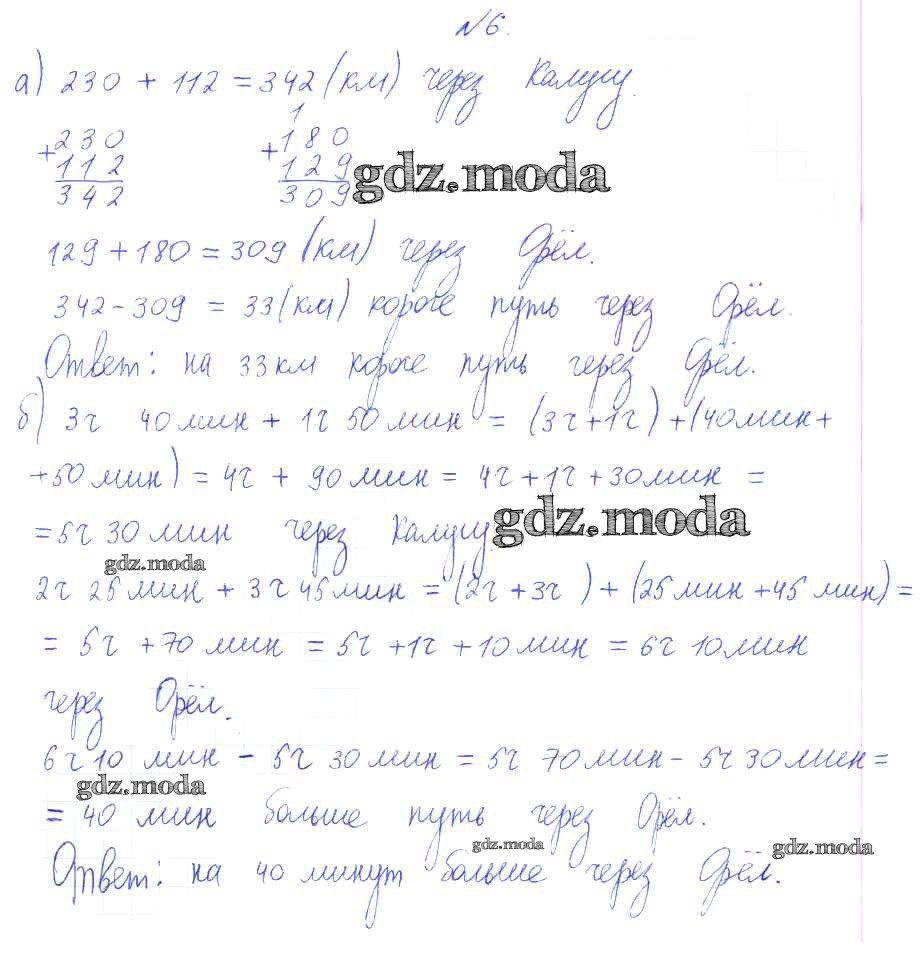 №6.
а) 230 + 112 = 342 (км) через Калугу.
1
+230 +180
112 129 gdz.moda
342 309
129 + 180 = 309 (км) через Орёл.
342 - 309 = 33 (км) короче путь через Орёл.
Ответ: на 33 км короче путь через Орёл.
б) 3ч 40 мин + 1ч 50 мин = (3ч+1ч) + (40 мин +
+50 мин) = 4ч + 90 мин = 4ч + 1ч + 30 мин =
= 5ч 30 мин через Калугу. gdz.moda
gdz.moda
2ч 25 мин + 3ч 45 мин = (2ч + 3ч) + (25 мин + 45 мин) =
= 5ч + 70 мин = 5ч + 1ч + 10 мин = 6ч 10 мин
через Орёл.
6ч 10 мин - 5ч 30 мин = 5ч 70 мин - 5ч 30 мин =
gdz.moda
= 40 мин больше путь через Орёл.
gdz.moda gdz.moda
Ответ: на 40 минут больше через Орёл.